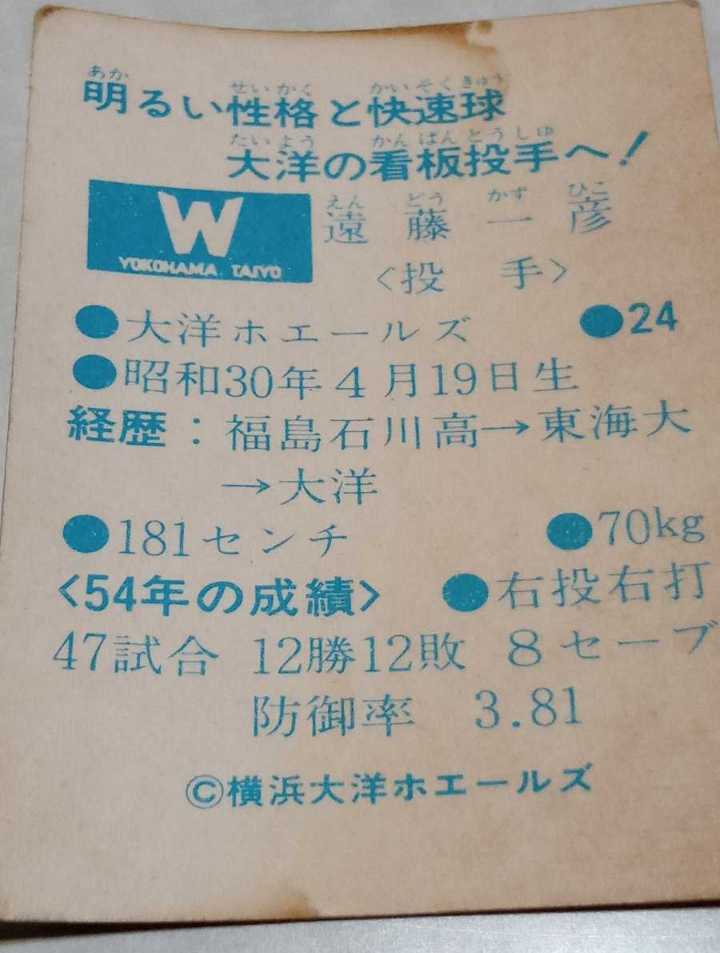 明るい性格と快速球
大洋の看板投手へ!
W
YOKOHAMA TAIYO
遠藤一彦
えんどうかずひこ
<投手>
●大洋ホエールズ ●24
●昭和30年4月19日生
経歴:福島石川高→東海大
→大洋
●181センチ ●70kg
<54年の成績> ●右投右打
47試合 12勝12敗 8セーブ
防御率 3.81
©横浜大洋ホエールズ